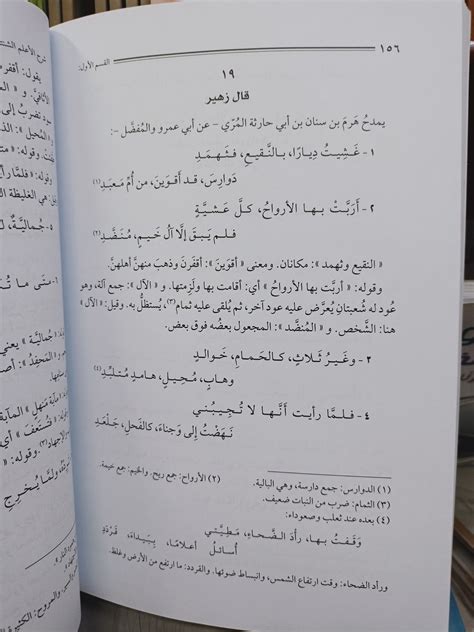 ١٥٦ القسم الأول:
١٩
قال زهير
يمدحُ هَرِمَ بن سنان بن أبي حارثة المُرّي – عن أبي عمرو والمُفضَّل -:
١ - غَشِيتُ دِيارًا، بالنَّقيعِ، فثَهْمَدِ
دَوارِسَ، قد أقوَينَ، من أُمِّ مَعبَدِ (١)
٢ - أرَبَّتْ بها الأرواحُ، كلَّ عَشيّةٍ
فلم يَبقَ إلّا آلُ خَيمٍ، مُنَضَّدِ (٢)
« النقيع وثهمد »: مكانان. ومعنى « أقوَينَ »: أقفرْنَ وذهبَ منهنَّ أهلهنَّ.
وقوله: « أربَّت بها الأرواحُ » أي: أقامت بها ولزِمتها. و « الآل »: جمع آلة، وهو
عُود له شُعبتانِ يُعرَّض عليه عود آخر، ثم يُلقى عليه ثمام(٣)، يُستظلُّ به. وقيل: « الآل »
هنا: الشَّخص. و « المُنضَّد »: المجعول بعضه فوق بعض.
٣ - وغَيرُ ثَلاثٍ، كالحَمامِ، خَوالِدِ
وهابٍ، مُحِيلٍ، هامِدٍ مُتلبِّدِ (٤)
٤ - فلمّا رأيت أنَّها لا تُجيبُني
نَهَضْتُ إلى وَجناءَ، كالفَحلِ، جَلْعَدِ
(١) الدوارس: جمع دارسة، وهي البالية. (٢) الأرواح: جمع ريح. والخيم: جمع خيمة.
(٣) الثمام: ضرب من النبات ضعيف.
(٤) بعده عند ثعلب وصعوداء:
وَقَفتُ بها، رأدَ الضَّحاءِ، مَطِيَّتي
أُسائلُ أعلامًا، بِبَيداءَ، قَردَدِ
ورأد الضحاء: وقت ارتفاع الشمس، وانبساط ضوئها. والقردد: ما ارتفع من الأرض وغلظ.